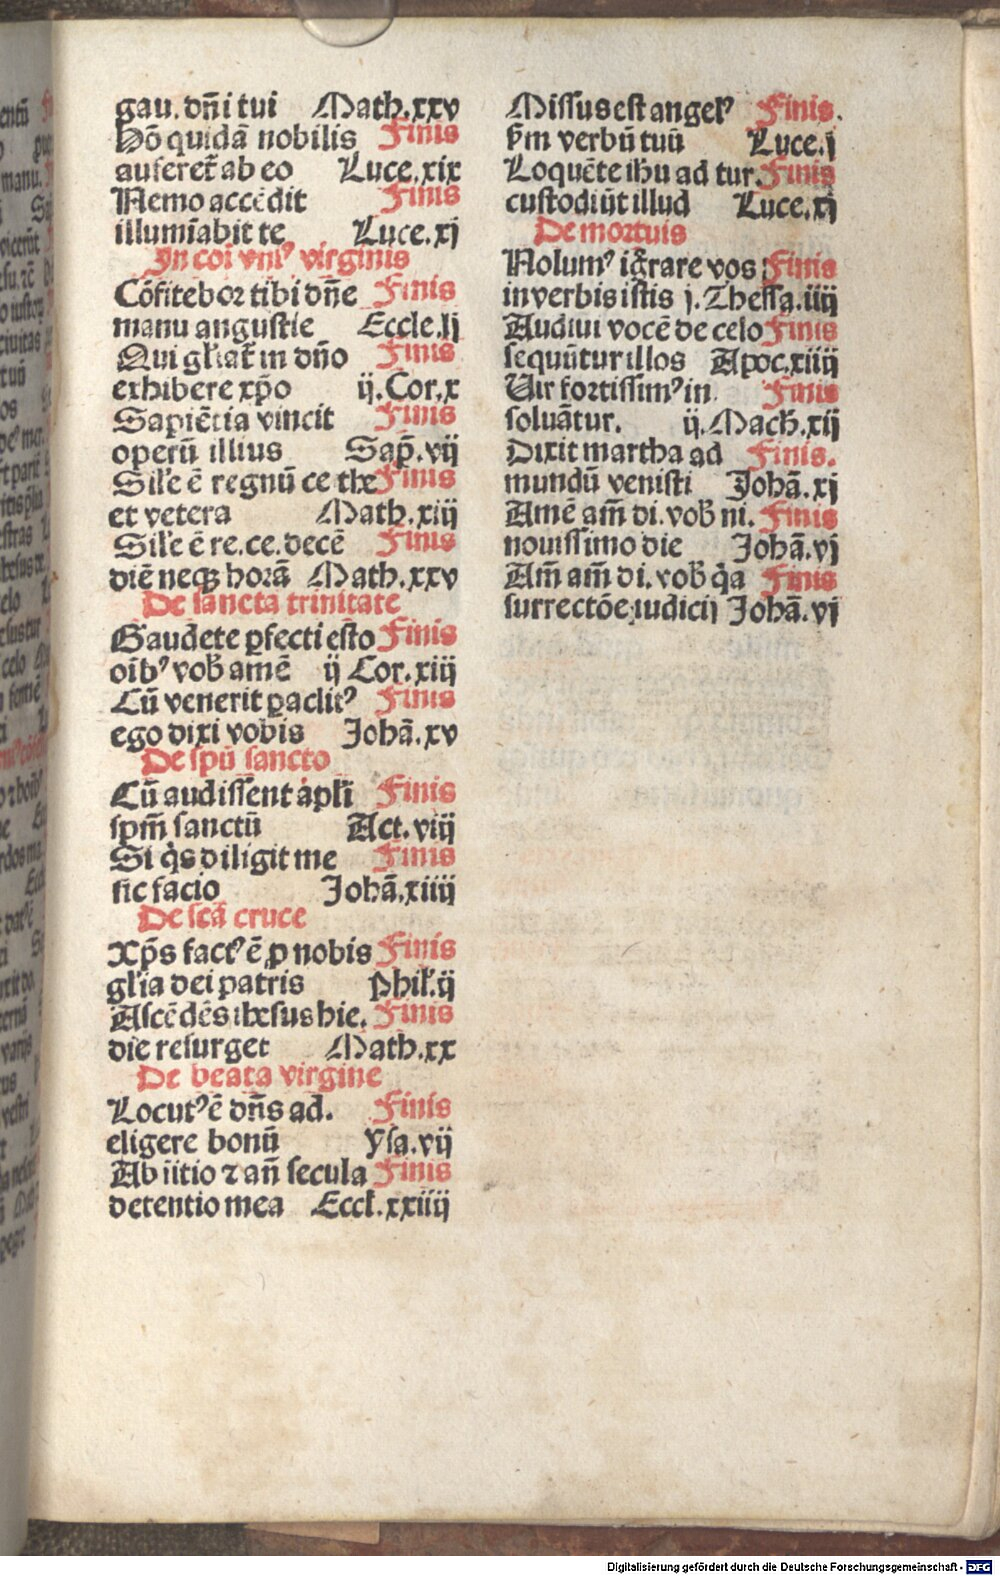 gau. dn̄i tui Math.xxv
Hō quidā nobilis Finis
auferet᷑ ab eo Luce.xix
Nemo accēdit Finis
illumīabit te Luce.xj
In cōi vniꝰ virginis
Cōfitebor tibi dn̄e Finis
manu angustie Eccle.lj
Qui gl̄iat᷑ in dn̄o Finis
exhibere xp̄o ij.Cor.x
Sapiētia vincit Finis
operū illius Sap̄.vij
Sil̄e ē regnū ce the Finis
et vetera Math.xiij
Sil̄e ē re.ce.decē Finis
diē neqꝫ horā Math.xxv
De sancta trinitate
Gaudete ꝑfecti esto Finis
oīb̄ꝰ vob̄ amē ij Cor.xiij
Cū venerit ꝑaclitꝰ Finis
ego dixi vobis Johā.xv
De sp̄u sancto
Cū audissent ap̄l̄i Finis
sp̄m̄ sanctū Act.viij
Si q̄s diligit me Finis
sic facio Johā.xiiij
De scā cruce
Xp̄s factꝰ ē ꝓ nobis Finis
gl̄ia dei patris Phil̄.ij
Ascēdēs ihesus hie. Finis
die resurget Math.xx
De beata virgine
Locutꝰ ē dn̄s ad. Finis
eligere bonū Ysa.vij
Ab īitio ⁊ an̄ secula Finis
detentio mea Eccl̄.xxiiij
Missus est angelꝰ Finis.
ẜm verbū tuū Luce.j
Loquēte ih̄u ad tur. Finis
custodiūt illud Luce.xj
De mortuis
Nolumꝰ iḡrare vos Finis
in verbis istis j.Thessa.iiij
Audiui vocē de celo Finis
sequūtur illos Apoc.xiiij
Uir fortissimꝰ in Finis
soluātur. ij.Mach̄.xij
Dixit martha ad Finis.
mundū venisti Johā.xj
Amē am̄ di.vob̄ ni. Finis
nouissimo die Johā.vj
Am̄ am̄ di.vob̄ q̄a Finis
surrectōe iudicij Johā.vj
Digitalisierung gefördert durch die Deutsche Forschungsgemeinschaft - DFG